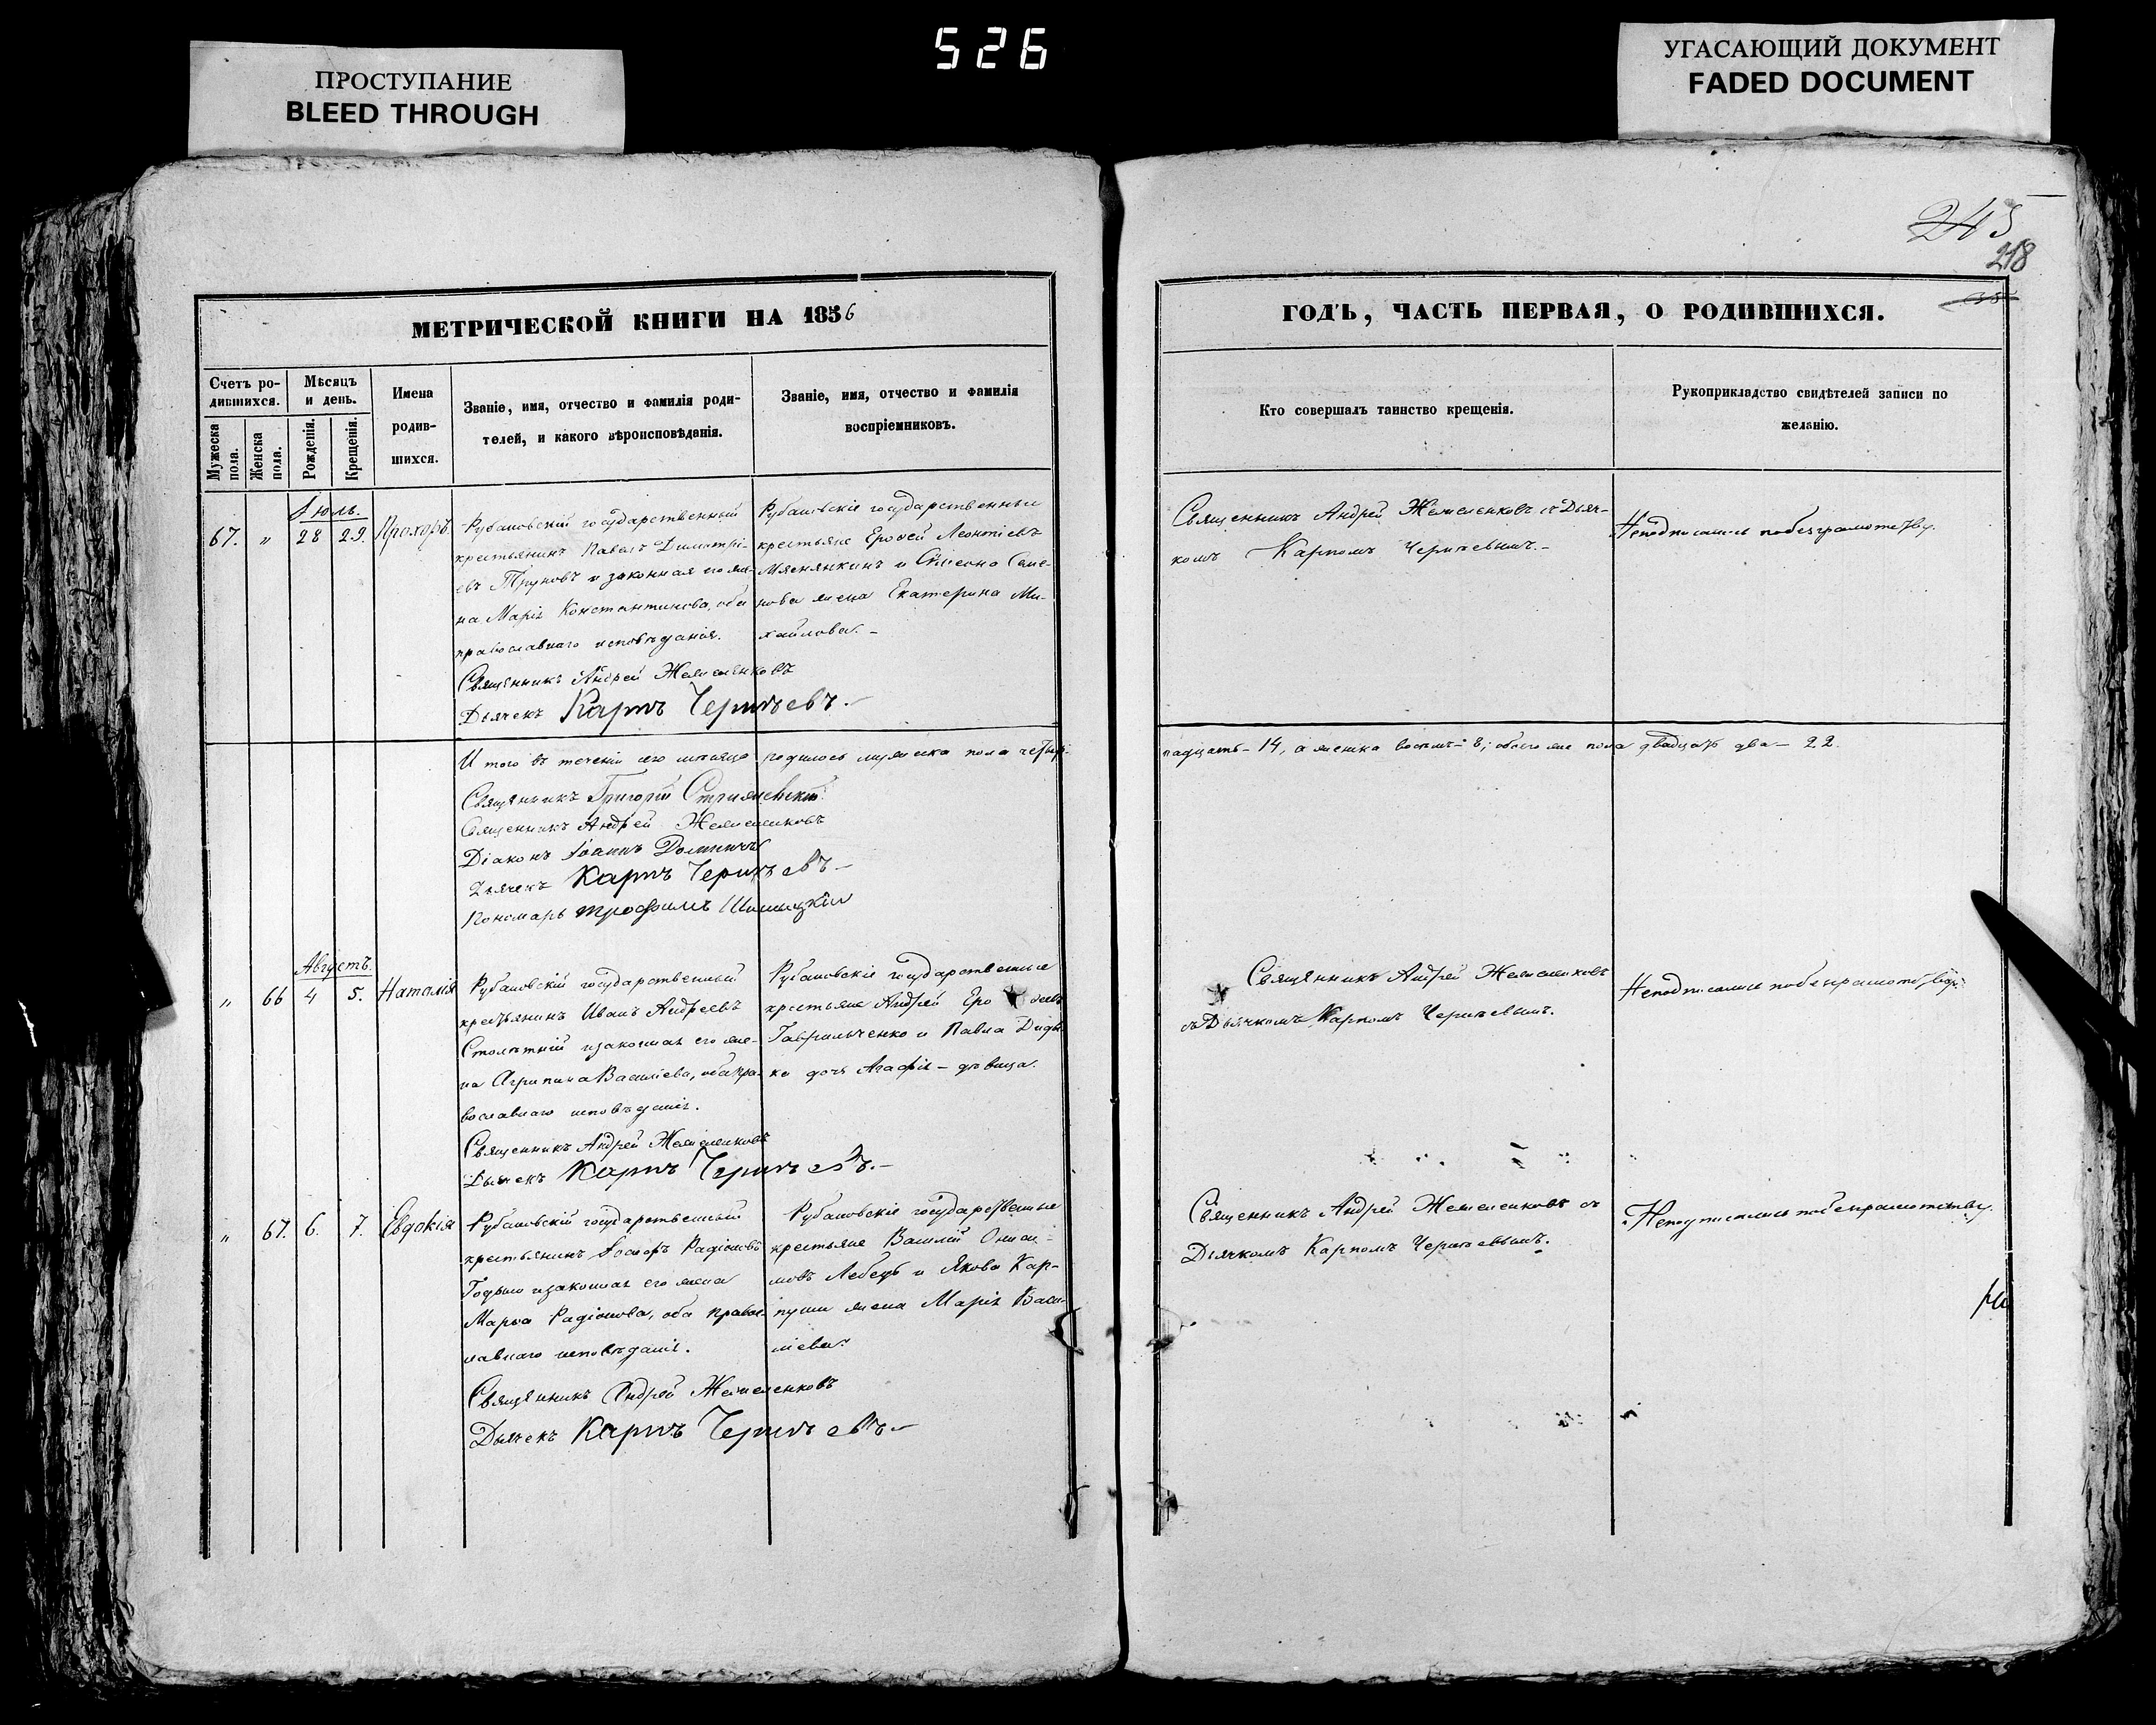 526
ПРОСТУПАНИЕ
BLEED THROUGH
УГАСАЮЩИЙ ДОКУМЕНТ
FADED DOCUMENT
245
218
МЕТРИЧЕСКОЙ КНИГИ НА 1856
ГОДЪ, ЧАСТЬ ПЕРВАЯ, О РОДИВШИХСЯ.
Счетъ ро-
дившихся.
Мѣсяцъ
и день.
Имена
родив-
шихся.
Званіе, имя, отчество и фамилія роди-
телей, и какого вѣроисповѣданія.
Званіе, имя, отчество и фамилія
воспріемниковъ.
Кто совершалъ таинство крещенія.
Рукоприкладство свидѣтелей записи по
желанію.
Мужеска
пола.
Женска
пола.
Рожденія.
Крещенія.
Іюль.
67. „ 28 29. Прохоръ.
Рубановскій государственный
крестьянинъ Павелъ Димитрі-
евъ Труновъ и законная его же-
на Марія Константинова, оба
православнаго исповѣданія.
Священникъ Андрей
Дьячекъ Карпъ
Рубановскіе государственные
крестьяне Ерофей Леонтіевъ
Мяснянкинъ и Семе-
нова жена Екатерина Ми-
хайлова. –
Священникъ Андрей съ Дьяч-
комъ Карпомъ
Неподписались побезграмотству.
Итого въ теченіи сего мѣсяца родилось мужеска пола четыр-
надцать – 14, а женска восемь – 8; обоего же пола двадцать два – 22.
Священникъ Григорій
Священникъ Андрей
Діаконъ Іоаннъ
Дьячекъ Карпъ
Пономарь Трофимъ
Августъ.
„ 66 4 5. Наталія
Рубановскій государственный
крестьянинъ Иванъ Андреевъ
Столѣтній изаконная его же-
на Агрипина Василіева, оба пра-
вославнаго исповѣданія.
Священникъ Андрей
Дьячекъ Карпъ
Рубановскіе государственные
крестьяне Андрей Еро феевъ
Гаврильченко и Павла Дидь
ка дочь Агафія – дѣвица.
Священникъ Андрей
съ Дьячкомъ Карпомъ
Неподписались побезграмотству.
„ 67. 6. 7. Евдокія
Рубановскій государственный
крестьянинъ Радіоновъ
изаконная его жена
Марѳа Радіонова, оба правос-
лавнаго исповѣданія.
Священникъ Андрей
Дьячекъ Карпъ
Рубановскіе государственные
крестьяне Василій
Лебедь и Якова Кар-
пуши жена Марія Васи-
ліева.
Священникъ Андрей съ
Дьячкомъ Карпомъ
Неподписались побезграмотству.